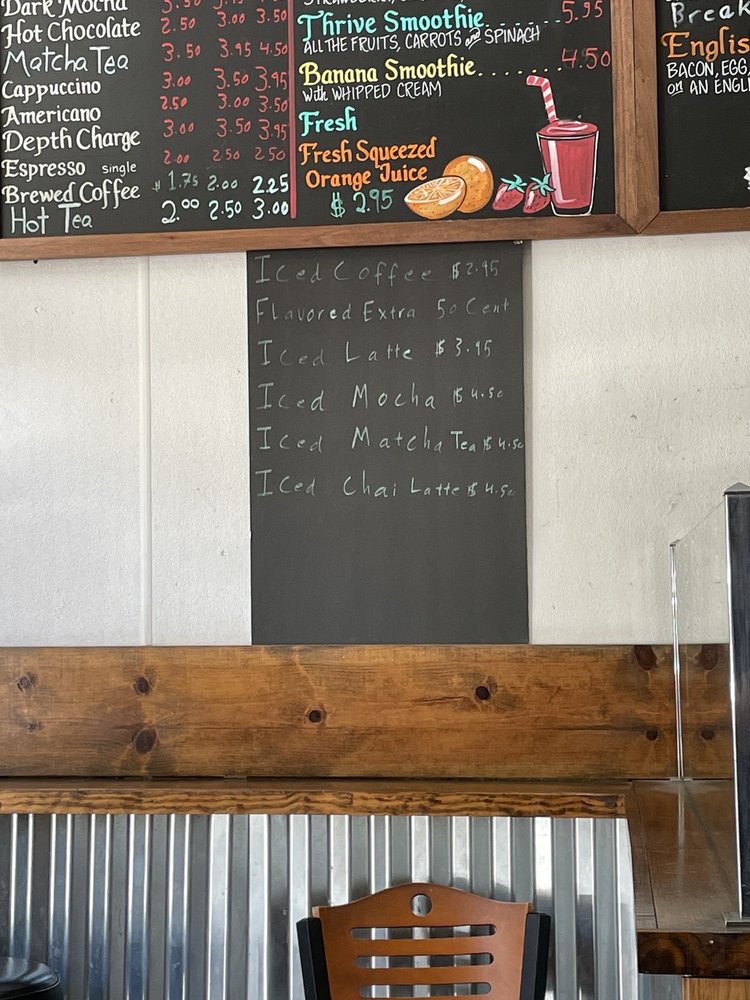 Dark Mocha 3.50
Hot Chocolate 2.50 3.00 3.50
Matcha Tea 3.50 3.95 4.50
Cappuccino 3.00 3.50 3.95
Americano 2.50 3.00 3.50
Depth Charge 3.00 3.50 3.95
Espresso single 2.00 2.50 2.50
Brewed Coffee $1.75 2.00 2.25
Hot Tea 2.00 2.50 3.00
Thrive Smoothie 5.95
ALL THE FRUITS, CARROTS and SPINACH
Banana Smoothie....... 4.50
With WHIPPED CREAM
Fresh
Fresh Squeezed
Orange Juice
$2.95
Break
Englis
BACON, EGG,
on AN ENGLI
Iced Coffee $2.95
Flavored Extra 50 Cent
Iced Latte $3.95
Iced Mocha $4.50
Iced Matcha Tea $4.50
Iced Chai Latte $4.50